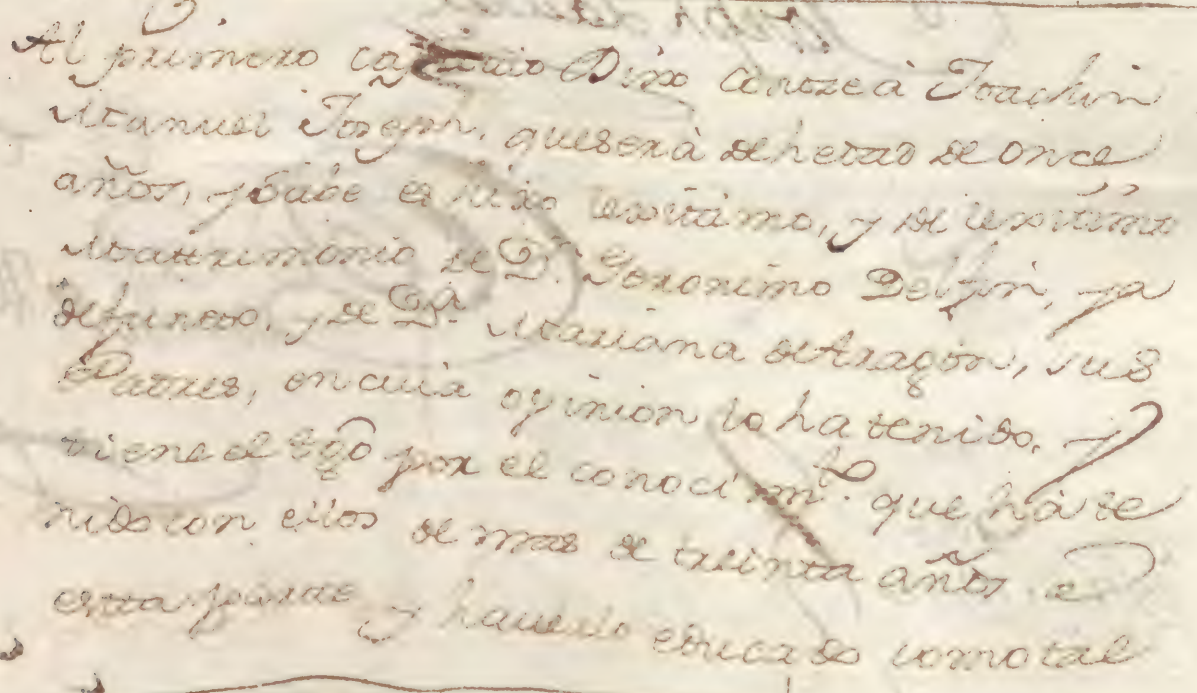 Al primero capitulo Dixo conoze à Joachin
Manuel Joseph, que será de hedad de once
años, y Save es hixo lexitimo, y de lexitimo
Mattrimonio de Dn. Geronimo Delfin, ya
defuncto, y de Da. Mariana de Aragon, sus
Padres, en cuia opinion lo ha tenido, y
tiene el tgo por el conocimto. que há te
nido con ellos de mas de treinta años a
esta parte y haverlo educado como tal